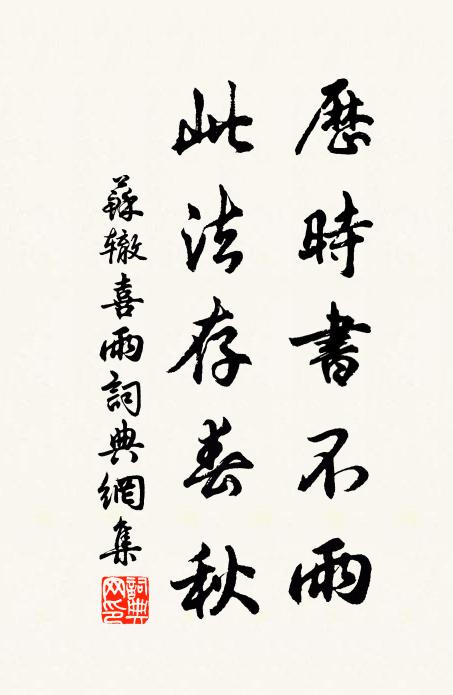 歷時書不雨
此法存春秋
蘇辙喜雨詞典網集
詞典网印